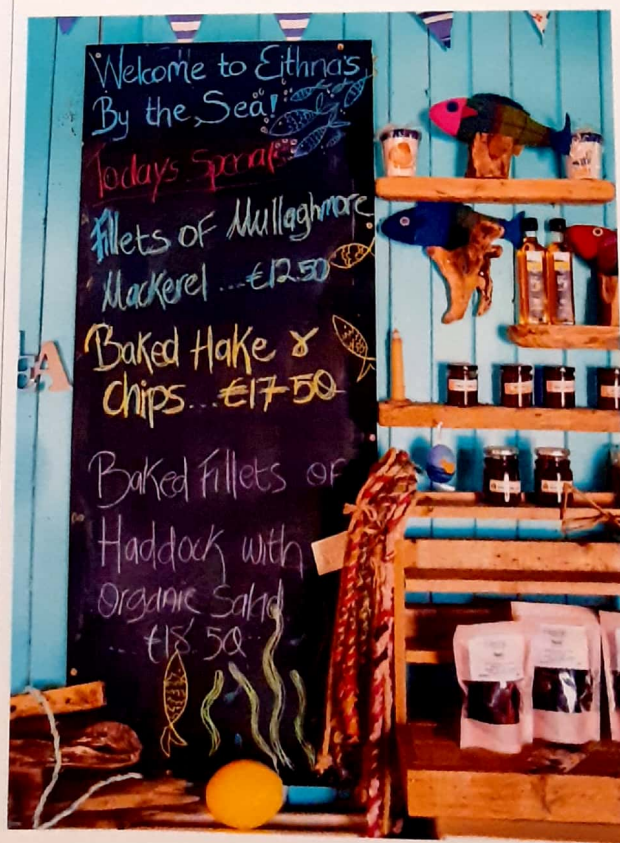 Welcome to Eithna's
By the Sea!
Todays Special
Fillets of Mullaghmore
Mackerel ... €12.50
Baked Hake &
Chips... €17-50
Baked Fillets of
Haddock with
Organic Salad
... €18.50...
A